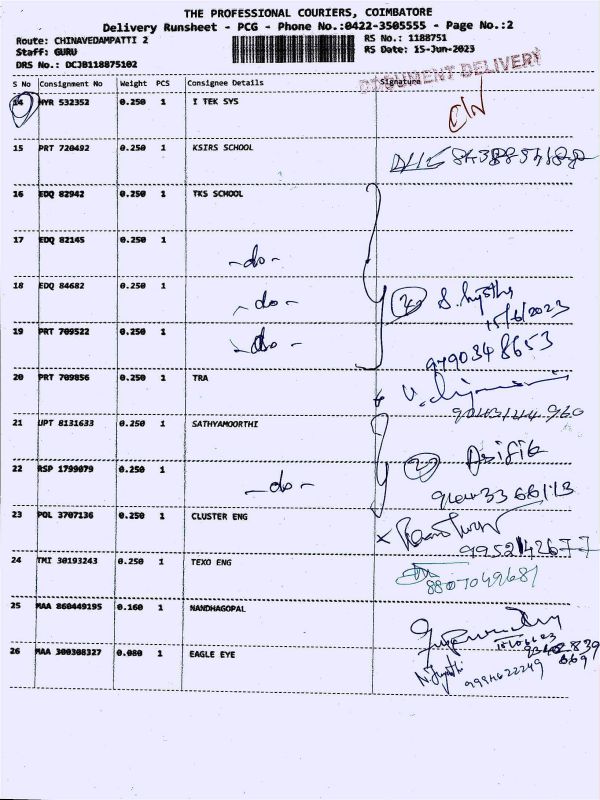 THE PROFESSIONAL COURIERS, COIMBATORE
Delivery Runsheet - PCG - Phone No.:0422-3505555 - Page No.:2
Route: CHINAVEDAMPATTI 2 RS No.: 1188751
Staff: GURU RS Date: 15-Jun-2023
DRS No.: DCJB118875102
DOCUMENT DELIVERY
S No Consignment No Weight PCS Consignee Details Signature
14 MYR 532352 0.250 1 I TEK SYS
15 PRT 720492 0.250 1 KSIRS SCHOOL
16 EDQ 82942 0.250 1 TKS SCHOOL
17 EDQ 82145 0.250 1 -do-
18 EDQ 84682 0.250 1 -do-
15/6/2023
19 PRT 709522 0.250 1 -do-
9790348653
20 PRT 709856 0.250 1 TRA
21 UPT 8131633 0.250 1 SATHYAMOORTHI
Asifik
22 RSP 1799079 0.250 1 -do-
23 POL 3707136 0.250 1 CLUSTER ENG
9952142677
24 TMI 30193243 0.250 1 TEXO ENG
8807049681
25 MAA 860449195 0.160 1 NANDHAGOPAL
26 MAA 300308327 0.080 1 EAGLE EYE